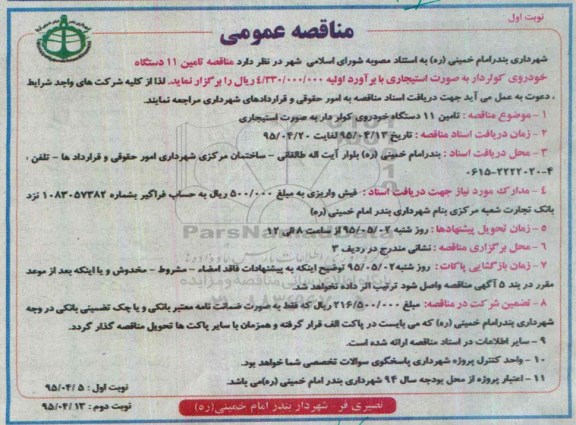 نوبت اول
مناقصه عمومی
شهرداری بندرامام خمینی (ره) به استناد مصوبه شورای اسلامی شهر در نظر دارد مناقصه تامین ۱۱ دستگاه
خودروی کولردار به صورت استیجاری با برآورد اولیه ۴/۳۳۰/۰۰۰/۰۰۰ ریال را برگزار نماید. لذا از کلیه شرکت های واجد شرایط
، دعوت به عمل می آید جهت دریافت اسناد مناقصه به امور حقوقی و قراردادهای شهرداری مراجعه نمایند.
۱ - موضوع مناقصه : تامین ۱۱ دستگاه خودروی کولر دار به صورت استیجاری
۲ - زمان دریافت اسناد مناقصه : تاریخ ۹۵/۰۴/۱۳ لغایت ۹۵/۰۴/۲۰
۳ - محل دریافت اسناد : بندرامام خمینی (ره) بلوار آیت اله طالقانی - ساختمان مرکزی شهرداری امور حقوقی و قرارداد ها - تلفن ،
۰۶۱۵-۲۲۲۲۰۲۰-۴
۴ - مدارک مورد نیاز جهت دریافت اسناد : فیش واریزی به مبلغ ۵۰۰/۰۰۰ ریال به حساب فراگیر بشماره ۱۰۸۳۰۵۷۳۸۲ نزد
بانک تجارت شعبه مرکزی بنام شهرداری بندر امام خمینی (ره)
۵ - زمان تحویل پیشنهادها : روز شنبه ۹۵/۰۵/۰۲ از ساعت ۸ الی ۱۲
۶ - محل برگزاری مناقصه : نشانی مندرج در ردیف ۳
۷ - زمان بازگشایی پاکات : روز شنبه ۹۵/۰۵/۰۲ توضیح اینکه به پیشنهادات فاقد امضاء - مشروط - مخدوش و یا اینکه بعد از موعد
مقرر در بند ۵ آگهی مناقصه واصل شود ترتیب اثر داده نخواهد شد.
۸ - تضمین شرکت در مناقصه: مبلغ ۲۱۶/۵۰۰/۰۰۰ ریال که فقط به صورت ضمانت نامه معتبر بانکی و یا چک تضمینی بانکی در وجه
شهرداری بندرامام خمینی (ره) که می بایست در پاکت الف قرار گرفته و همزمان با سایر پاکت ها تحویل مناقصه گذار گردد.
۹ - سایر اطلاعات در اسناد مناقصه ارائه شده است.
۱۰ - واحد کنترل پروژه شهرداری پاسخگوی سوالات تخصصی شما خواهد بود.
۱۱ - اعتبار پروژه از محل بودجه سال ۹۴ شهرداری بندر امام خمینی (ره)می باشد.
نوبت اول : ۹۵/۰۴/۰۵
نوبت دوم : ۹۵/۰۴/۱۳
نصیری فر - شهردار بندر امام خمینی(ره)
ParsNamadData